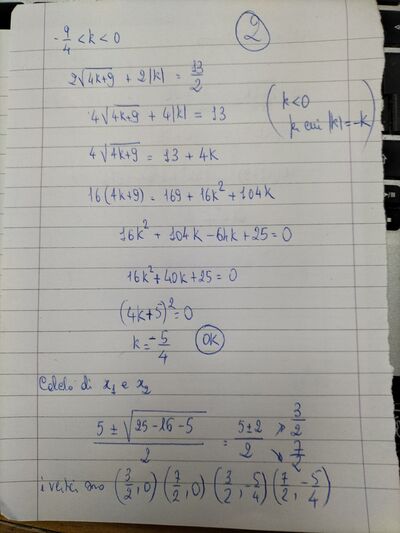 2
- 9/4 < k < 0
2√(4k+9) + 2|k| = 13/2
4√(4k+9) + 4|k| = 13
(k<0 per cui |k|=-k)
4√(4k+9) = 13 + 4k
16(4k+9) = 169 + 16k² + 104k
16k² + 104k - 64k + 25 = 0
16k² + 40k + 25 = 0
(4k+5)² = 0
k = -5/4 OK
Calcolo di x₁ e x₂
(5 ± √(25 - 16 - 5))/2 = (5 ± 2)/2 3/2 7/2
i vertici sono (3/2, 0) (7/2, 0) (3/2, -5/4) (7/2, -5/4)